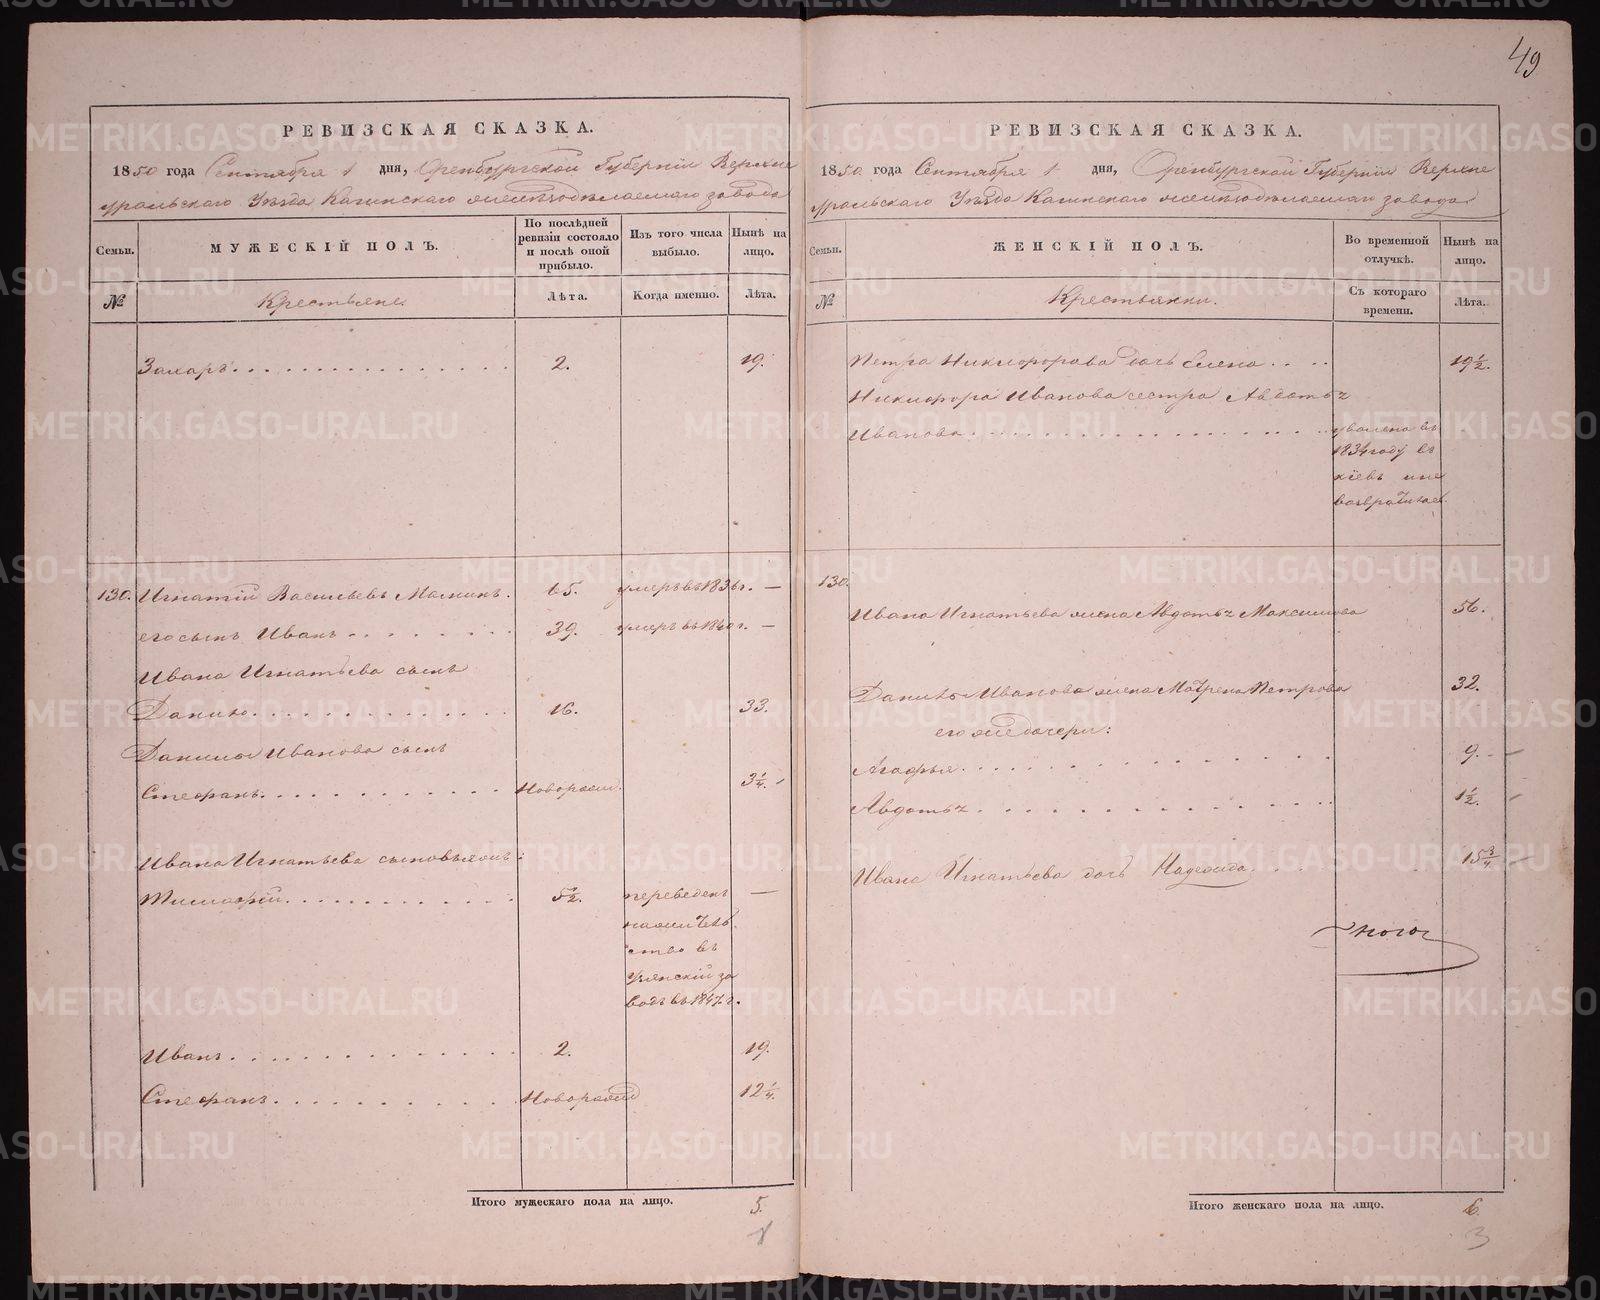 49
РЕВИЗСКАЯ СКАЗКА.
1850 года Сентября 1 дня, Оренбургской Губернiи Верхне
уральскаго Уѣзда Кагинскаго желѣзодѣлаемаго завода
Семьи.
МУЖЕСКIЙ ПОЛЪ.
По послѣдней
ревизiи состояло
и послѣ оной
прибыло.
Изъ того числа
выбыло.
Нынѣ на
лицо.
№
Крестьяне.
Лѣта.
Когда именно.
Лѣта.
Захаръ. 2. 19.
130. Игнатiй Васильевъ 65. умеръ въ 1836 г. —
его сынъ Иванъ 39. умеръ въ 1840 г. —
Ивана Игнатьева сынъ
Данило. 16. 33.
Данилы Иванова сынъ
Стефанъ. Новорожд. 3 1/4.
Ивана Игнатьева сыновья:
Тимофей. 5 1/2. переведенъ —
ство въ
Узянскiй за
водъ въ 1847 г.
Иванъ. 2. 19.
Стефанъ. Новорожд 12 1/4.
Итого мужескаго пола на лицо. 5.
РЕВИЗСКАЯ СКАЗКА.
1850 года Сентября 1 дня, Оренбургской Губернiи Верхне
уральскаго Уѣзда Кагинскаго желѣзодѣлаемаго завода
Семьи.
ЖЕНСКIЙ ПОЛЪ.
Во временной
отлучкѣ.
Нынѣ на
лицо.
№
Крестьянки.
Съ котораго
времени.
Лѣта.
Петра Никифорова дочь Елена 19 1/2.
Никифора Иванова сестра Авдотья
Иванова. уволена въ
1834 году въ
Кiевъ и не
возвратилась.
130.
Ивана Игнатьева жена Авдотья Максимова 56.
Данилы Иванова жена Матрена Петрова 32.
его же дочери:
Агафья. 9.
Авдотья. 1 1/2.
Ивана Игнатьева дочь Надежда. 15 3/4
Итого женскаго пола на лицо. 6.
3
METRIKI.GASO-URAL.RU